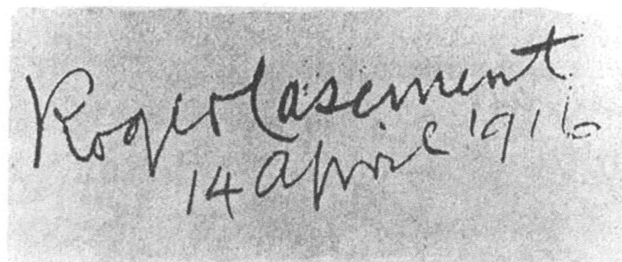 Roger Casement
14 April 1916